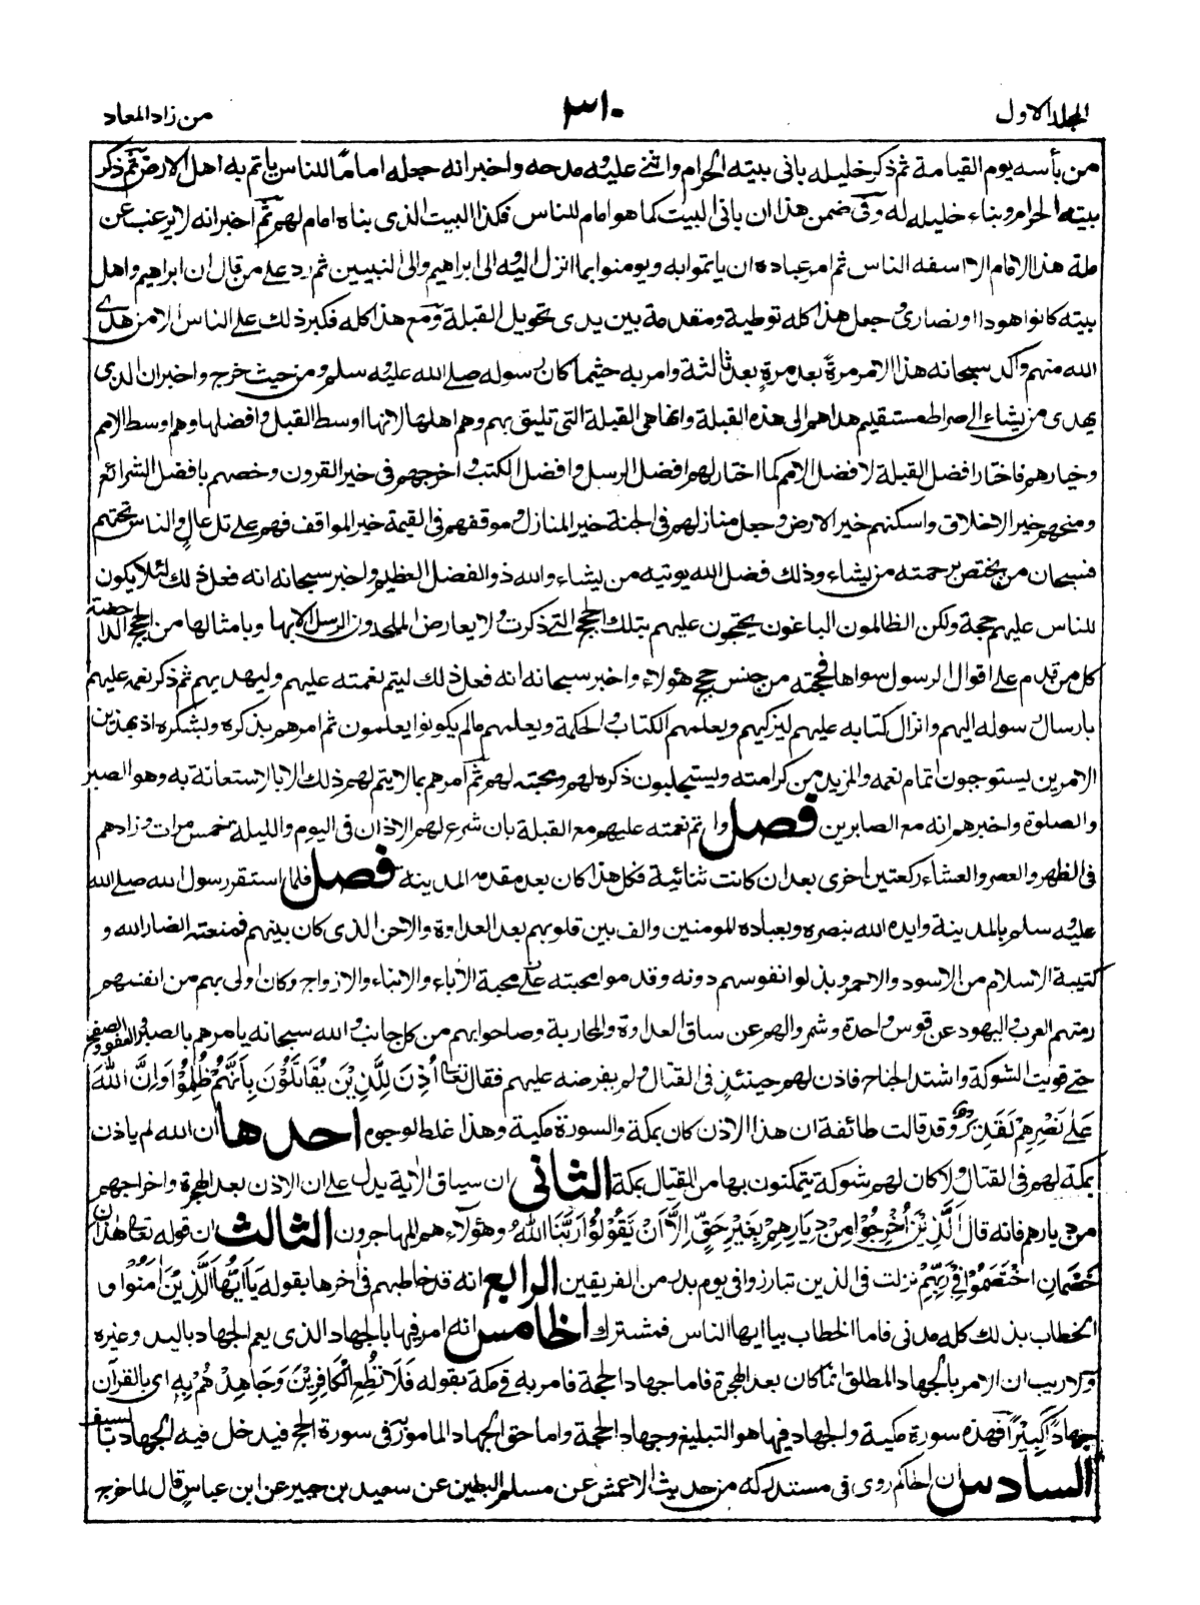 المجلد الاول
٣١٠
من زاد المعاد
من بأسه يوم القيامة ثم ذكر خليله بانى بيته الحرام واثنى عليه ومدحه واخبر انه جعله اماما للناس ياتم به اهل الارض ثم ذكر
بيته الحرام وبناء خليله له وفى ضمن هذا ان بانى البيت كما هو امام للناس فكذا البيت الذى بناه امام لهم ثم اخبر انه لا يرغب عن
ملة هذا الامام الا اسفه الناس ثم امر عباده ان ياتموا به ويومنوا بما انزل اليه والى ابراهيم والى النبيين ثم رد على من قال ان ابراهيم واهل
بيته كانوا هودا او نصارى وجعل هذا كله توطية ومقدمة بين يدى تحويل القبلة ومع هذا كله فكبر ذلك على الناس الا من هدى
الله منهم واكد سبحانه هذا الامر مرة بعد مرة بعد ثالثة وامر به حيثما كان رسوله صلى الله عليه وسلم ومن حيث خرج واخبر ان الذى
يهدى من يشاء الى صراط مستقيم هداهم الى هذه القبلة وانها هى القبلة التى تليق بهم وهم اهلها لانها اوسط القبل وافضلها وهم اوسط الامم
وخيارهم فاختار افضل القبلة لافضل الامم كما اختار لهم افضل الرسل وافضل الكتب واخرجهم فى خير القرون وخصهم بافضل الشرائع
ومنحهم خير الاخلاق واسكنهم خير الارض وجعل منازلهم فى الجنة خير المنازل وموقفهم فى القيمة خير المواقف فهم على تل عال والناس تحتهم
فسبحان من يختص برحمته من يشاء وذلك فضل الله يوتيه من يشاء والله ذو الفضل العظيم واخبر سبحانه انه فعل ذلك لئلا يكون
للناس عليهم حجة ولكن الظالمون الباغون يحتجون عليهم بتلك الحجج التى ذكرت ولا يعارض الملحدون الرسل الا بها وبامثالها من الحجج الداحضة
كل من قدم على اقوال الرسول سواها فحجته من جنس حجج هؤلاء واخبر سبحانه انه فعل ذلك ليتم نعمته عليهم وليهديهم ثم ذكر نعمه عليهم
بارسال رسوله اليهم وانزال كتابه عليهم ليزكيهم ويعلمهم الكتاب والحكمة ويعلمهم مالم يكونوا يعلمون ثم امرهم بذكره وبشكره اذ بهذين
الامرين يستوجبون اتمام نعمه والمزيد من كرامته ويستجلبون ذكره لهم ومحبته لهم ثم امرهم بما لا يتم لهم ذلك الا بالاستعانة به وهو الصبر
والصلوة واخبرهم انه مع الصابرين فصل واتم نعمته عليهم مع القبلة بان شرع لهم الاذان فى اليوم والليلة خمس مرات وزادهم
فى الظهر والعصر والعشاء ركعتين اخرى بعد ان كانت ثنائية فكل هذا كان بعد مقدمه المدينة فصل فلما استقر رسول الله صلى الله
عليه وسلم بالمدينة وايده الله بنصره وبعباده المومنين والف بين قلوبهم بعد العداوة والاحن الذى كان بينهم فمنعته انصار الله و
كتيبة الاسلام من الاسود والاحمر وبذلوا نفوسهم دونه وقدموا محبته على محبة الآباء والابناء والازواج وكان اولى بهم من انفسهم
رمتهم العرب واليهود عن قوس واحدة وشمروا لهم عن ساق العداوة والمحاربة وصاحوا بهم من كل جانب والله سبحانه يامرهم بالصبر والعفو والصفح
حتى قويت الشوكة واشتد الجناح فاذن لهم حينئذ فى القتال ولم يفرضه عليهم فقال تعالى اُذِنَ لِلَّذِيْنَ يُقَاتَلُوْنَ بِاَنَّهُمْ ظُلِمُوْا وَاِنَّ اللّٰهَ
عَلٰى نَصْرِهِمْ لَقَدِيْرٌ وقد قالت طائفة ان هذا الاذن كان بمكة والسورة مكية وهذا غلط لوجوه احدها ان الله لم ياذن
بمكة لهم فى القتال ولا كان لهم شوكة يتمكنون بها من القتال بمكة الثانى ان سياق الآية يدل على ان الاذن بعد الهجرة واخراجهم
من ديارهم فانه قال اَلَّذِيْنَ اُخْرِجُوْا مِنْ دِيَارِهِمْ بِغَيْرِ حَقٍّ اِلَّا اَنْ يَقُوْلُوْا رَبُّنَا اللّٰهُ وهؤلاء هم المهاجرون الثالث ان قوله تعالى هٰذَانِ
خَصْمَانِ اخْتَصَمُوْا فِيْ رَبِّهِمْ نزلت فى الذين تبارزوا فى يوم بدر من الفريقين الرابع انه قد خاطبهم فى اخرها بقوله يَا اَيُّهَا الَّذِيْنَ اٰمَنُوْا و
الخطاب بذلك كله مدنى فاما الخطاب بيا ايها الناس فمشترك الخامس انه امر فيها بالجهاد الذى يعم الجهاد باليد وغيره
ولا ريب ان الامر بالجهاد المطلق انما كان بعد الهجرة فاما جهاد الحجة فامر به فى مكة بقوله فَلَا تُطِعِ الْكَافِرِيْنَ وَجَاهِدْهُمْ بِهٖ اى بالقرآن
جِهَادًا كَبِيْرًا فهذه سورة مكية والجهاد فيها هو التبليغ وجهاد الحجة واما حق الجهاد المامور فى سورة الحج فيدخل فيه الجهاد بالسيف
السادس ان الحاكم روى فى مستدركه من حديث الاعمش عن مسلم البطين عن سعيد بن جبير عن ابن عباس قال لما خرج